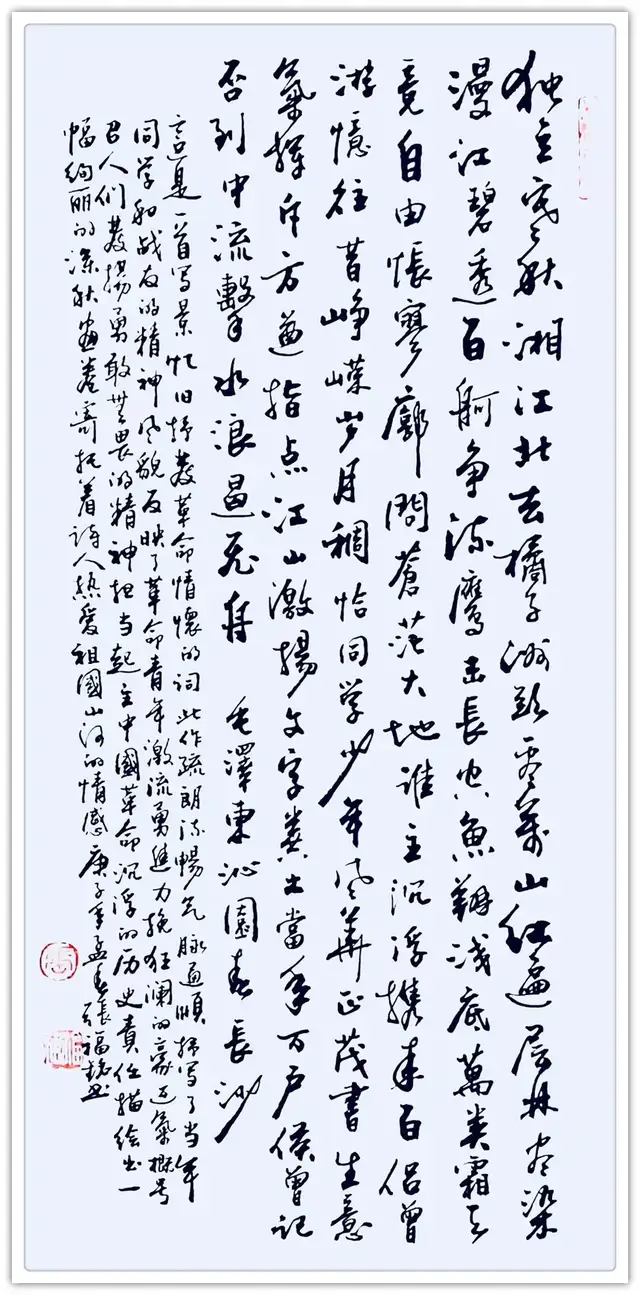 独立寒秋湘江北去橘子洲头看萬山红遍层林尽染
漫江碧透百舸争流鹰击長空鱼翔浅底萬类霜天
竟自由怅寥廓問蒼茫大地谁主沉浮携来百侣曾
游憶往昔峥嵘岁月稠恰同学少年风華正茂書生意
氣挥斥方遒指点江山激揚文字粪土當年万户侯曾记
否到中流擊水浪遏飞舟 毛澤東沁園春長沙
這是一首写景忆旧抒發革命情懷的词此作疏朗流暢气脉通顺抒写了当年
同学和战友的精神风貌反映了革命青年激流勇進力挽狂澜的豪迈氣概号
召人们發揚勇敢無畏的精神担当起主中國革命沉浮的历史責任描绘出一
幅绚丽的深秋画卷寄托着詩人热爱祖國山河的情感庚子年孟春張福书